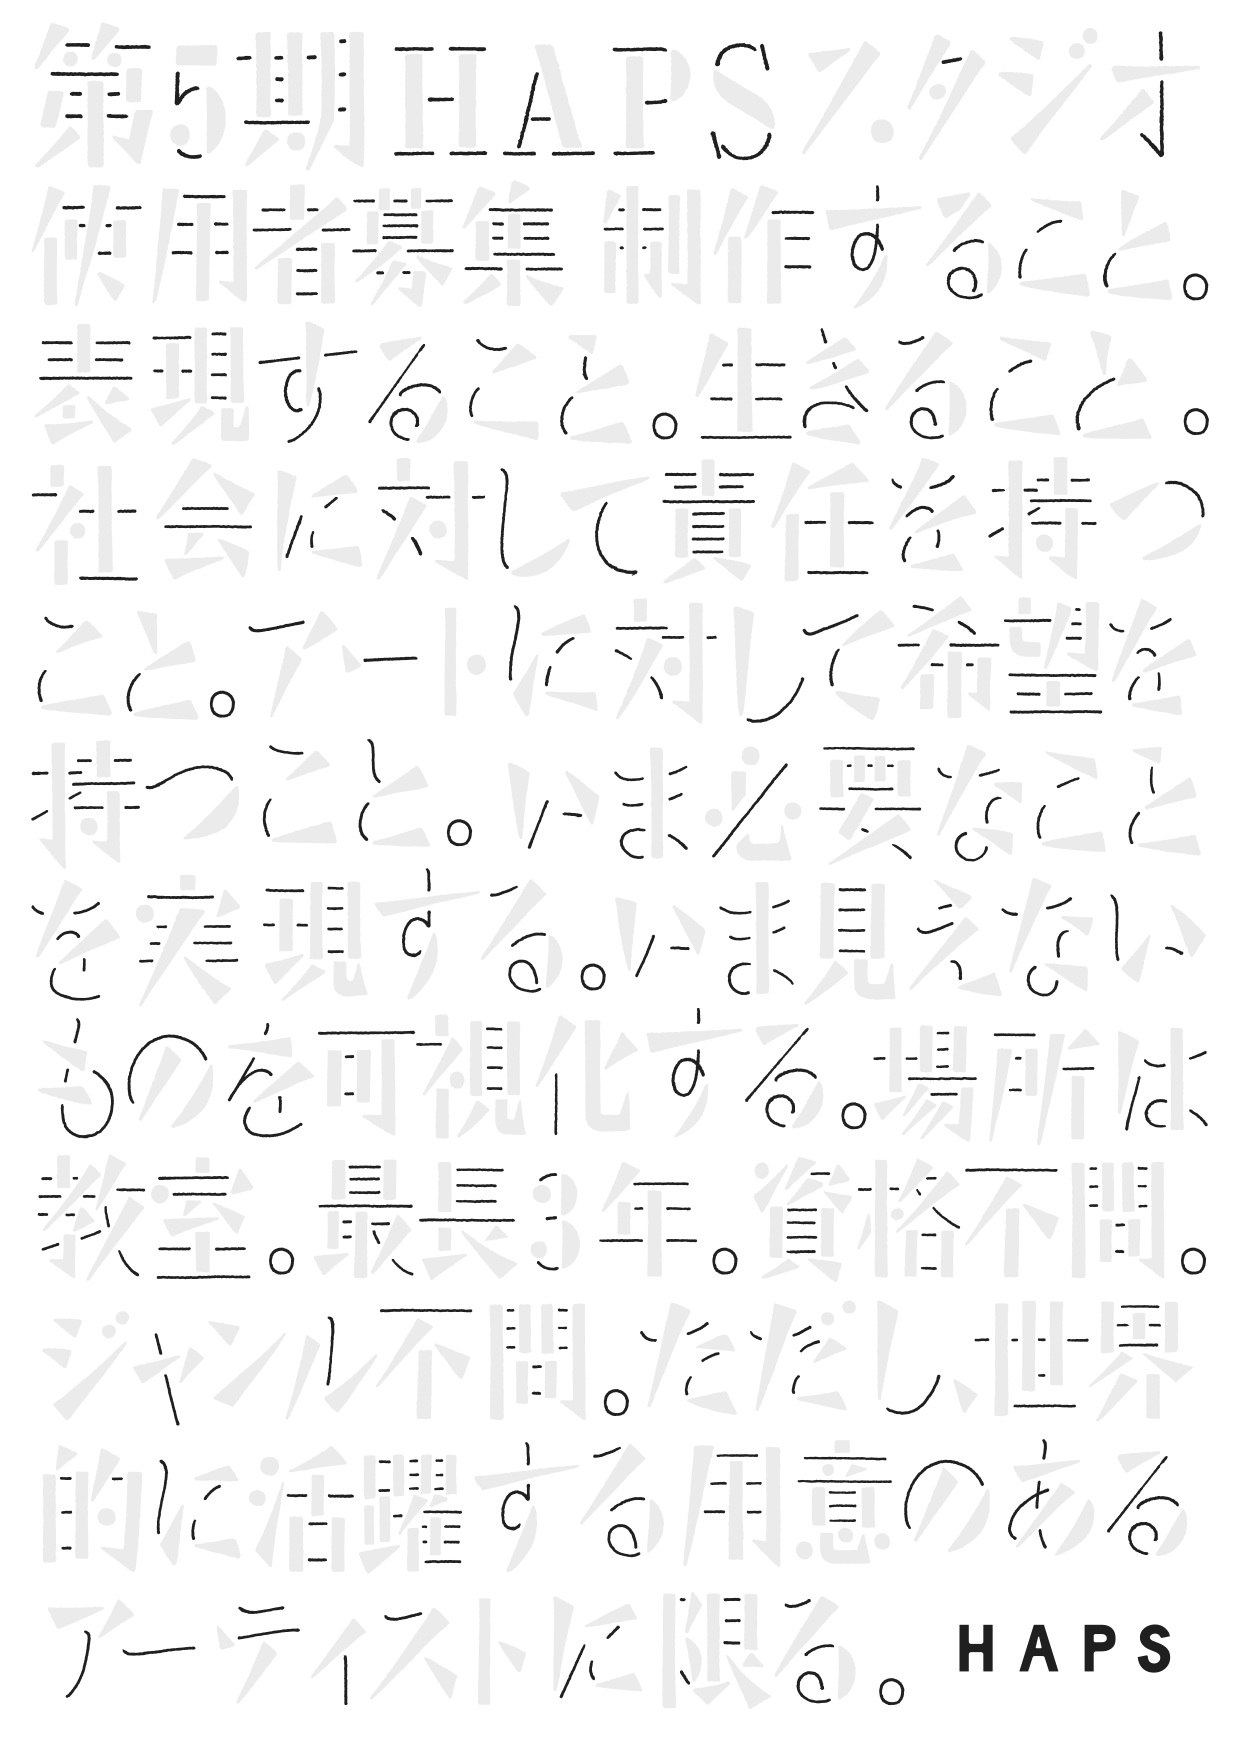 第5期HAPSスタジオ
使用者募集 制作すること。
表現すること。生きること。
社会に対して責任を持つ
こと。アートに対して希望を
持つこと。いま必要なこと
を実現する。いま見えない
ものを可視化する。場所は
教室。最長3年。資格不問。
ジャンル不問。ただし、世界
的に活躍する用意のある
アーティストに限る。 HAPS